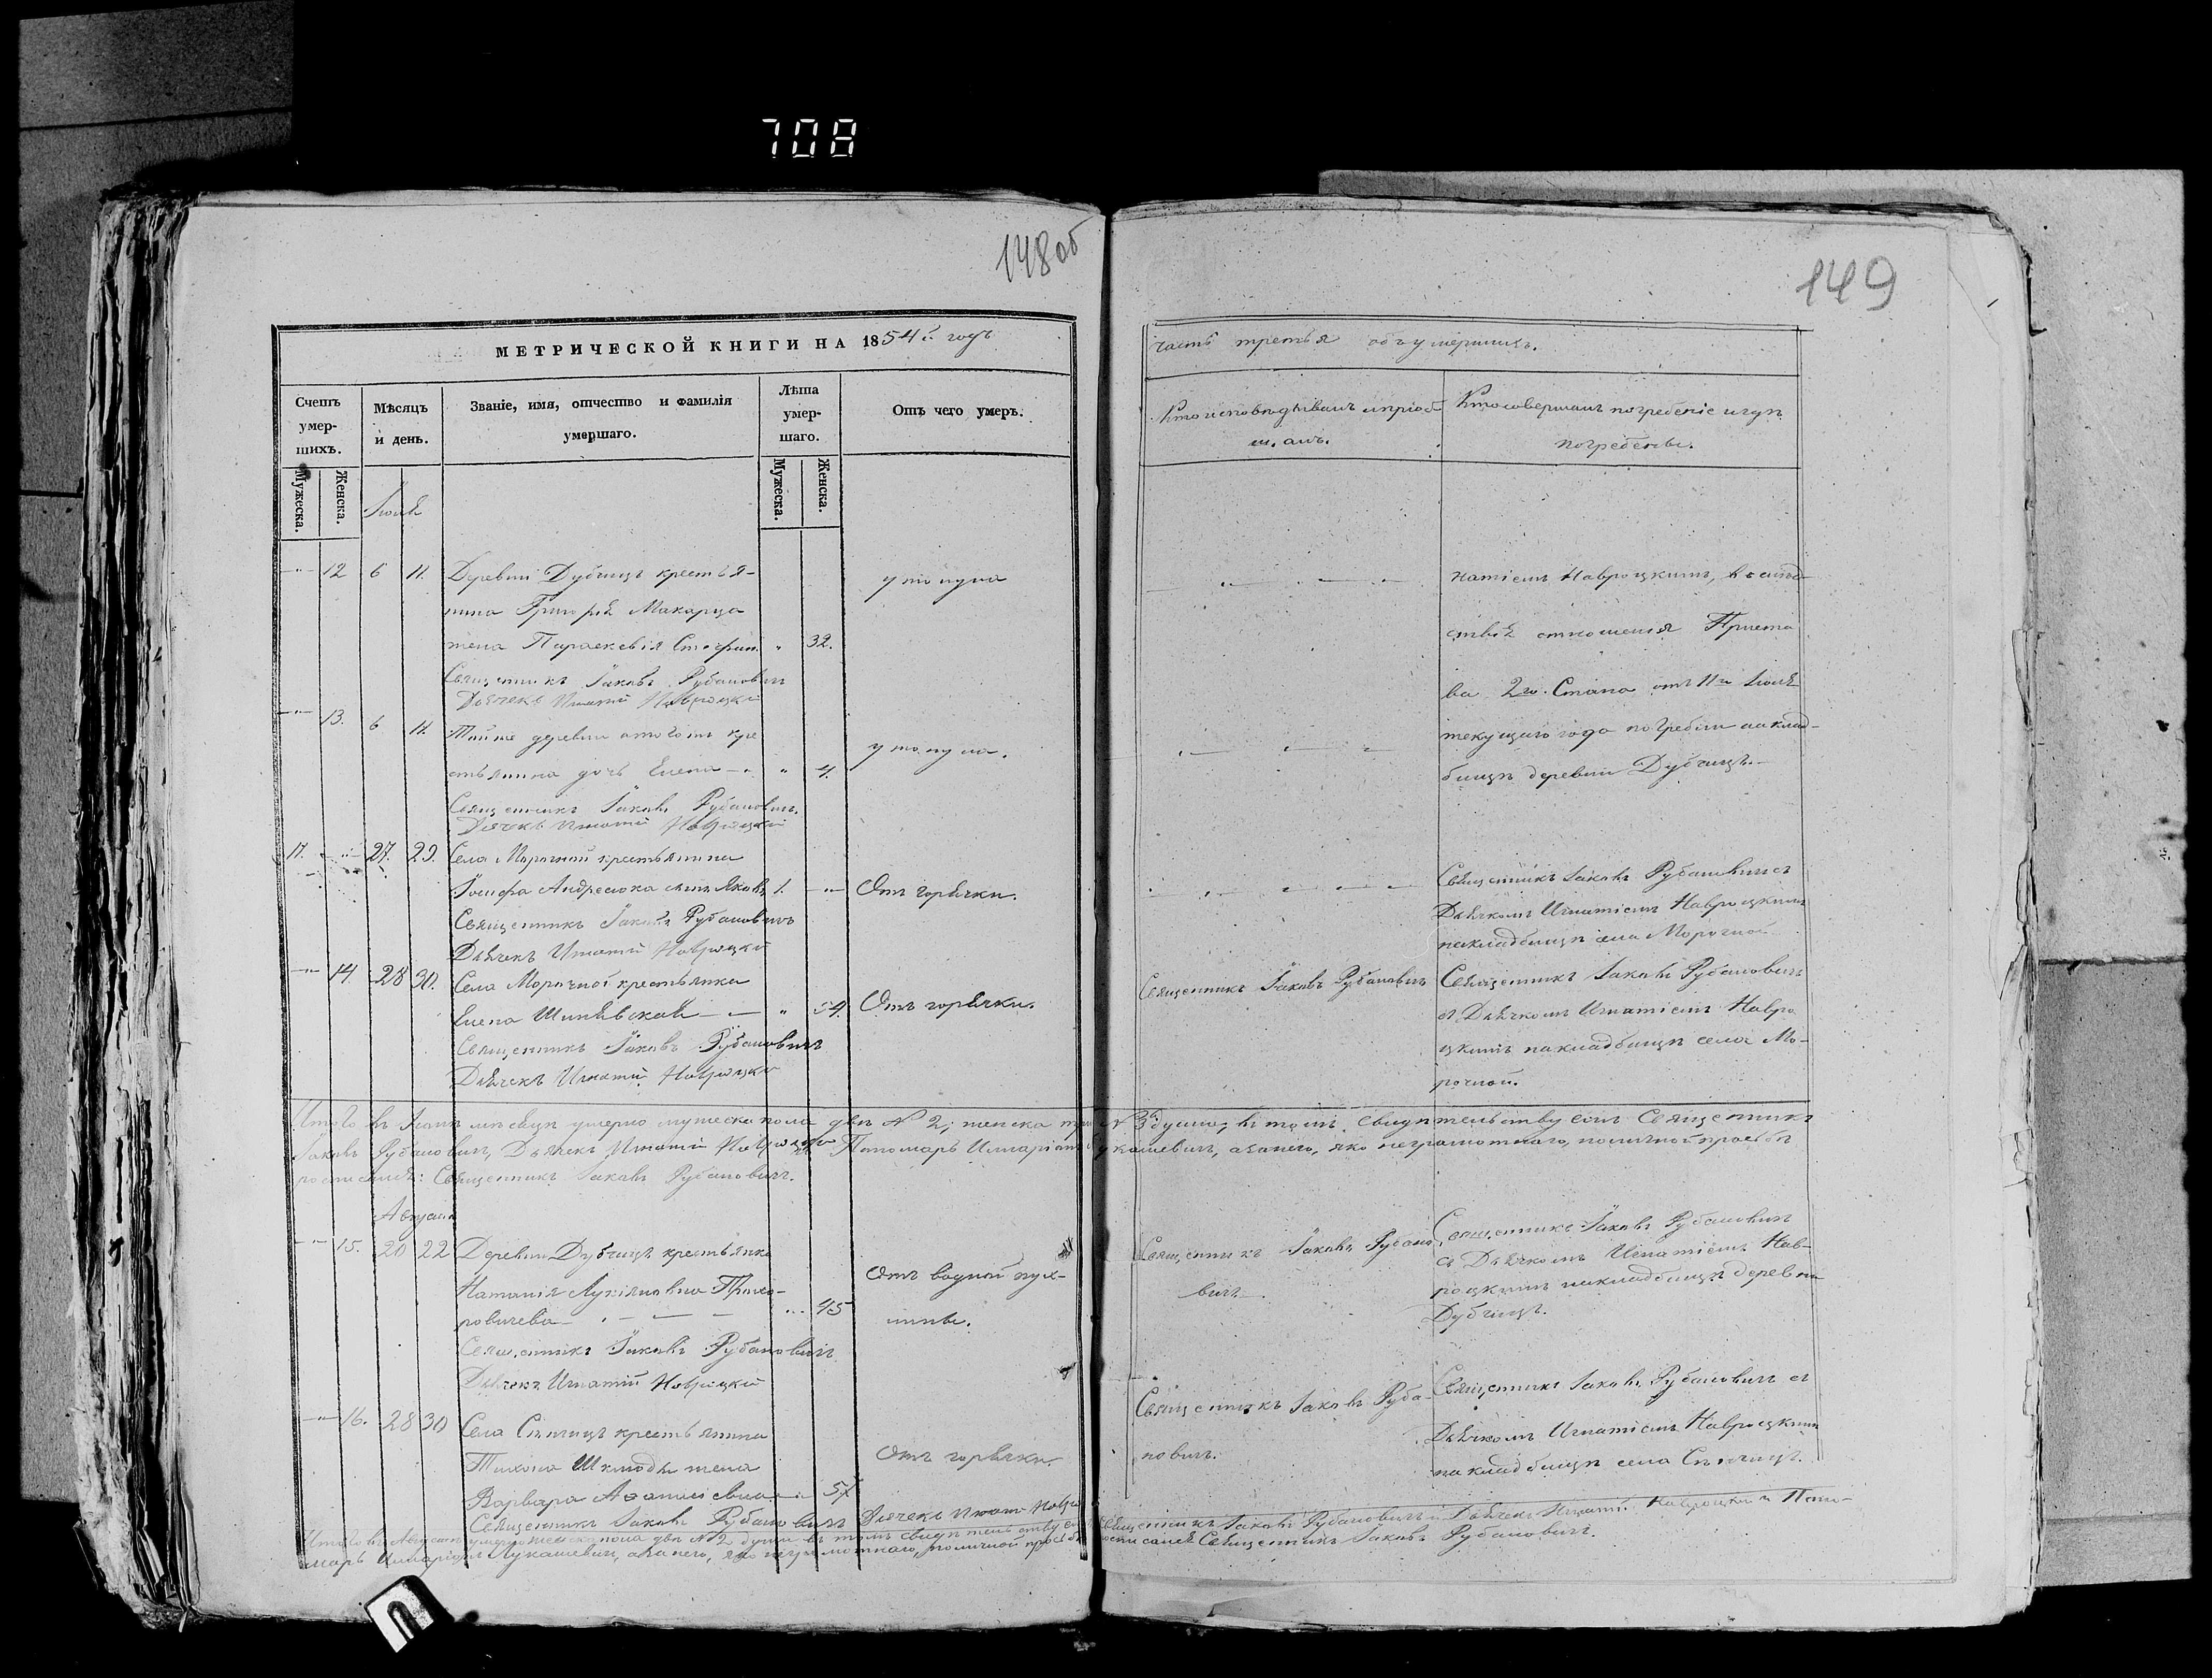 708
148 об
149
МЕТРИЧЕСКОЙ КНИГИ НА 1854й годъ
часть третья объ умершихъ.
Счетъ умер-шихъ.
Мѣсяцъ и день.
Званіе, имя, отчество и фамилія умершаго.
Лѣта умер-шаго.
Отъ чего умеръ.
Кто исповѣдывалъ и пріоб-
щалъ.
Кто совершалъ погребеніе и гдѣ
погребены.
Мужеска.
Женска.
Мужеска.
Женска.
Іюля
12 6 11. Деревни Дубчицъ крестья-
нина Григорія Макарца
жена Параскевія 32.
утонула
Священникъ Іаковъ Рубановичъ
Дьячекъ Игнатій Навроцкій
натіемъ Навроцкимъ, въ слѣд-
ствіе отношенія Приста
ва 2го. Стана отъ 11го Іюля
текущаго года погребли на клад-
бищѣ деревни Дубчицъ.
13. 6 11. Той же деревни крe
стьянина дочь Елена 4.
утонула.
Священникъ Іаковъ Рубановичъ.
Дьячекъ Игнатій Навроцкій
11. 27. 29. Села Морочной крестьянина
Іосифа Андреюка сынъ Яковъ 1.
Отъ горячки.
Священникъ Іаковъ Рубановичъ
Дьячекъ Игнатій Навроцкій
Священникъ Іаковъ Рубановичъ съ
Дьячкомъ Игнатіемъ Навроцкимъ
на кладбищѣ села Морочной
14. 28 30. Села Морочной крестьянка
Елена 54.
Отъ горячки.
Священникъ Іаковъ Рубановичъ
Дьячекъ Игнатій Навроцкій
Священникъ Іаковъ Рубановичъ
Священникъ Іаковъ Рубановичъ
съ Дьячкомъ Игнатіемъ Навро
цкимъ на кладбищѣ села Мо-
рочной.
Итого въ Іюлѣ мѣсяцѣ умерло мужеска пола двѣ № 2, женска три № 3 души, въ томъ свидѣтельствуемъ Священникъ
Іаковъ Рубановичъ, Дьячекъ Игнатій Навроцкій Пономарь Иларіонъ Лукашевичъ, а за него, яко неграмотнаго, по личной просьбѣ
росписался: Священникъ Іаковъ Рубановичъ.
Августа
15. 20 22 Деревни Дубчицъ крестьянка
Наталія 45
Отъ водной пух-
лины.
Священникъ Іаковъ Рубановичъ
Дьячекъ Игнатій Навроцкій
Священникъ Іаковъ Рубано
вичъ
Священникъ Іаковъ Рубановичъ
съ Дьячкомъ Игнатіемъ Нав-
роцкимъ на кладбищѣ деревни
Дубчицъ.
16. 28 30 Села крестьянина
Тихона жена
Варвара 57
Отъ горячки.
Священникъ Іаковъ Рубановичъ Дьячекъ Игнатій
Священникъ Іаковъ Руба-
новичъ.
Священникъ Іаковъ Рубановичъ съ
Дьячкомъ Игнатіемъ Навроцкимъ
на кладбищѣ села
Итого въ Августѣ умерло женска пола двѣ № 2 души въ томъ свидѣтельствуемъ Священникъ Іаковъ Рубановичъ Дьячекъ Игнатій Навроцкій и Поно-
марь Иларіонъ Лукашевичъ, а за него, яко неграмотнаго, по личной просьбѣ росписался Священникъ Іаковъ Рубановичъ.